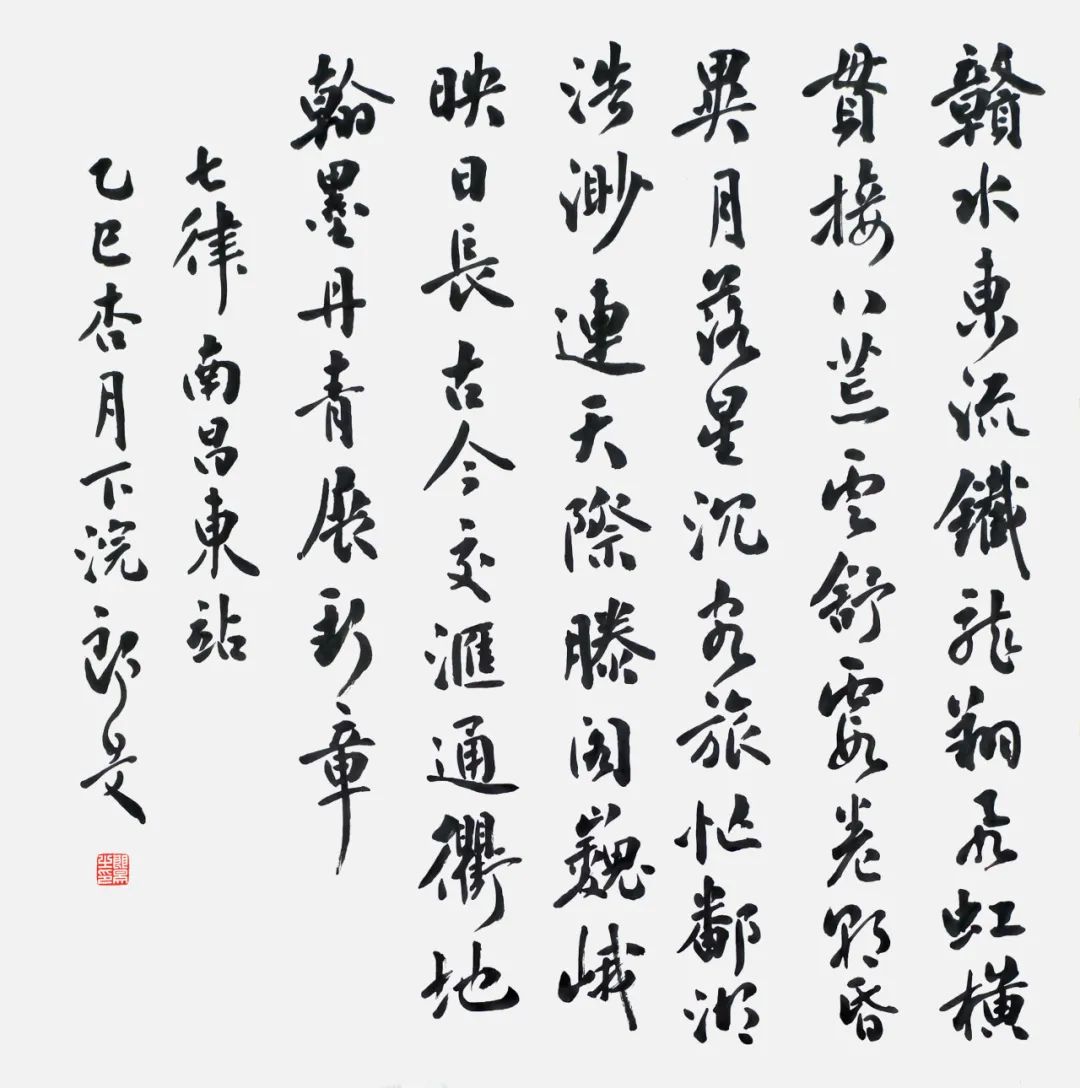 贛水東流鐵龍翔飛虹橫
貫接八荒雲舒霞卷朝昏
異月落星沉客旅忙鄱湖
浩渺連天際滕閣巍峨
映日長古今交滙通衢地
翰墨丹青展新章
七律南昌東站
乙巳杏月下浣郎